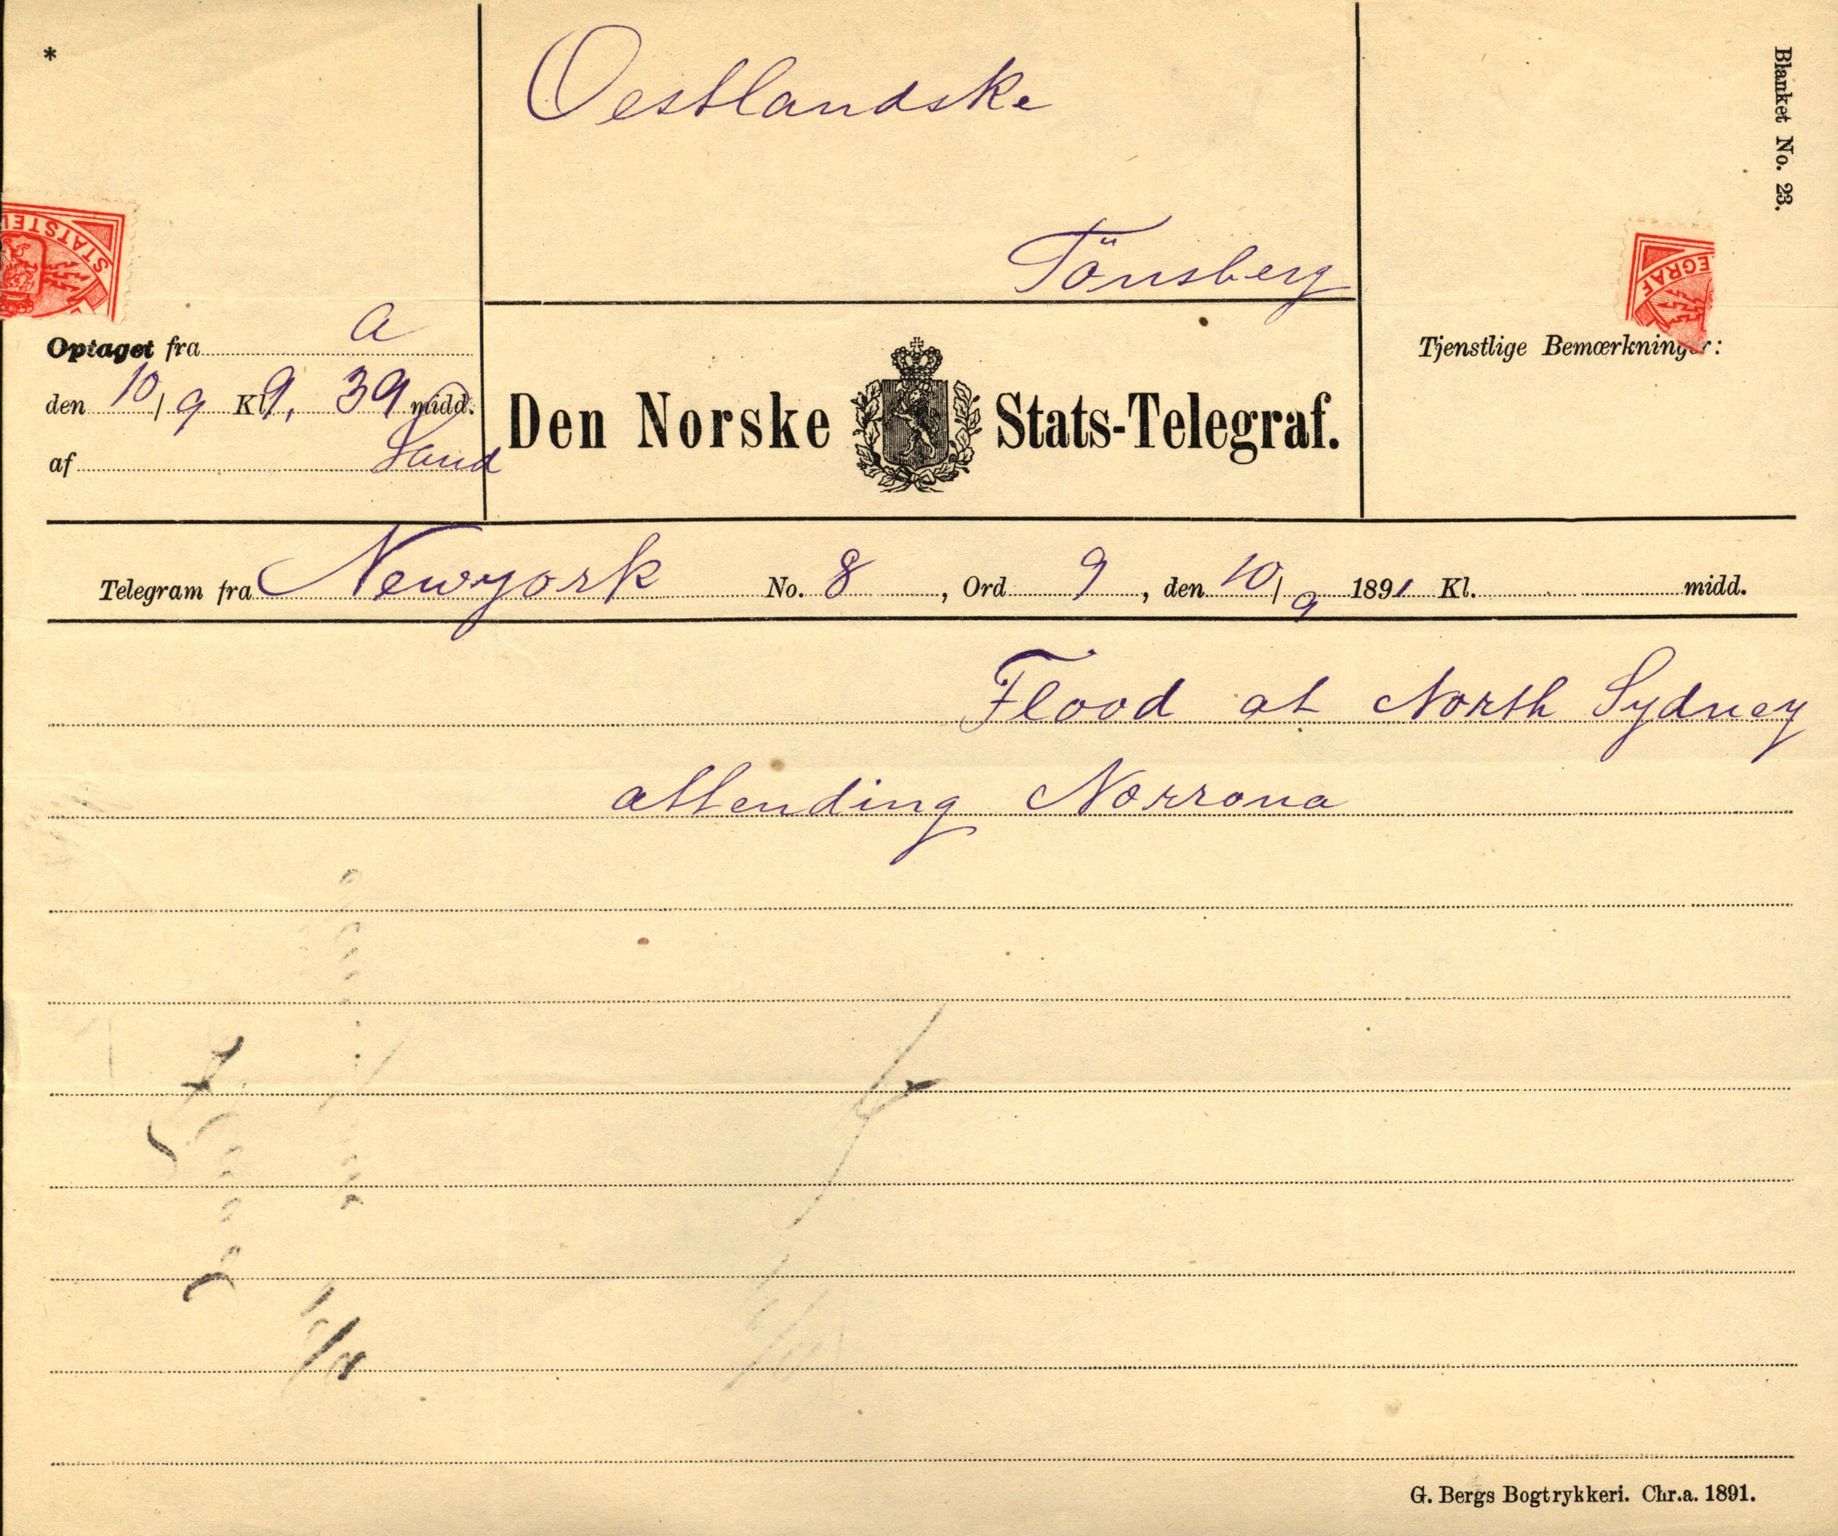 *
Oestlandske
Blanket No. 23.
Tönsberg
STATSTEL
EGRAF
Optaget fra a
Tjenstlige Bemærkninger:
den 10/9 Kl 9, 39 midd.
Den Norske Stats-Telegraf.
af Sand
Telegram fra Newyork No. 8, Ord 9, den 10/9 1891 Kl. midd.
Flood at North Sydney
attending Norrona
G. Bergs Bogtrykkeri. Chr.a. 1891.